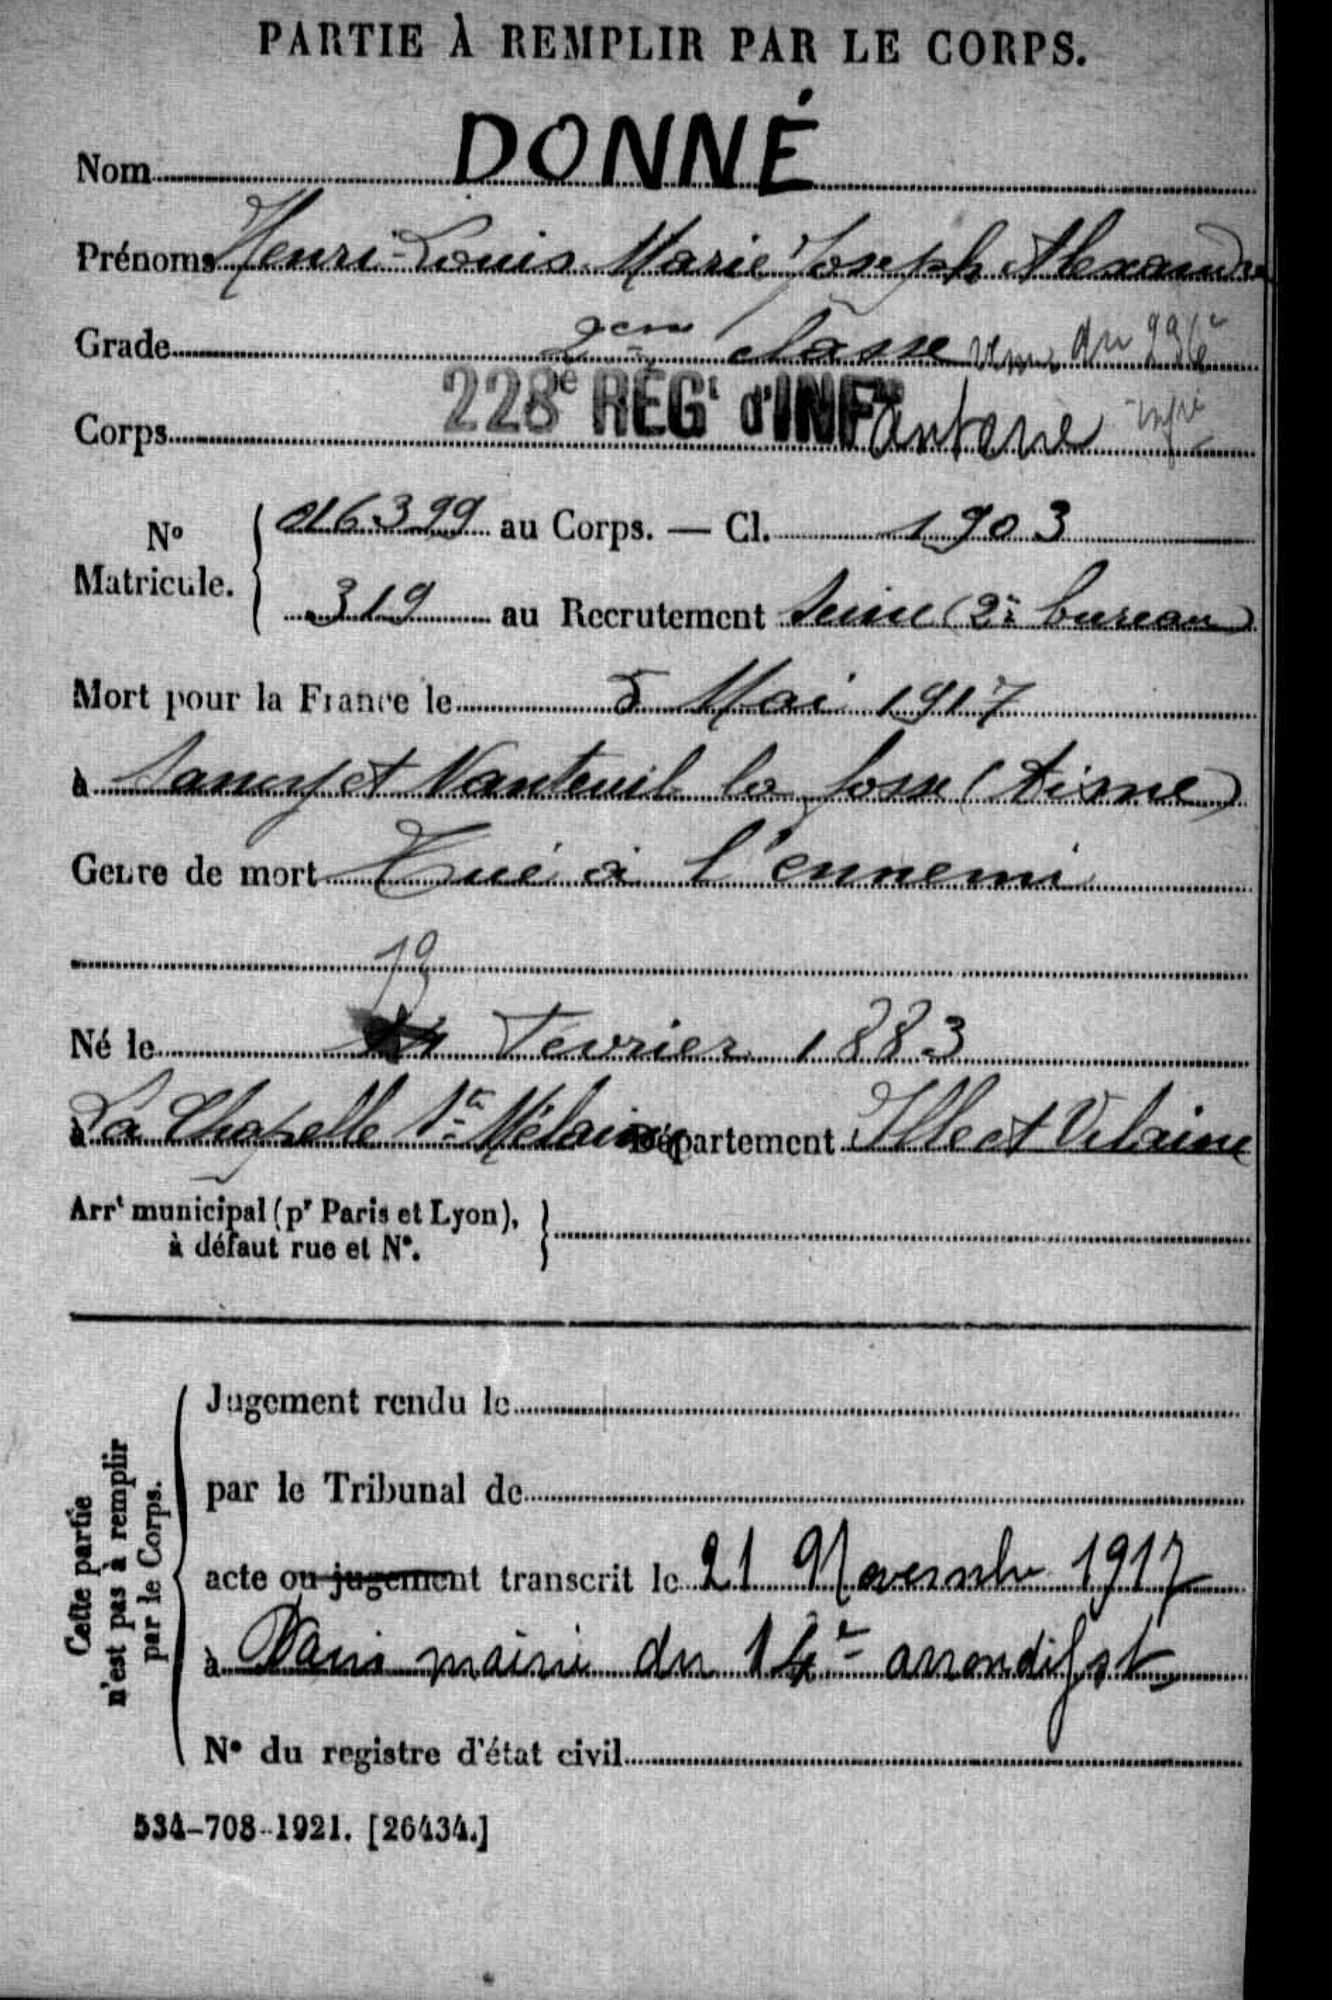 PARTIE À REMPLIR PAR LE CORPS.
Nom DONNÉ
Prénoms Henri-Louis Marie Joseph Alexandre
Grade 2em classe venu du 236e
Corps 228e RÉGt d'INFanterie infie
No Matricule. 016399 au Corps. — Cl. 1903
319 au Recrutement Seine (2e bureau)
Mort pour la France le 5 Mai 1917
à Sancy et Nanteuil la fosse (Aisne)
Genre de mort Tué à l'ennemi
13
Né le Février 1883
à La Chapelle Ste Mélaine Département Ille et Vilaine
Arrt municipal (pr Paris et Lyon),
à défaut rue et N°.
Cette partie
n'est pas à remplir
par le Corps.
Jugement rendu le
par le Tribunal de
acte ou jugement transcrit le 21 Novembre 1917
à Paris mairie du 14e arrondisst
N° du registre d'état civil
534-708-1921. [26434.]